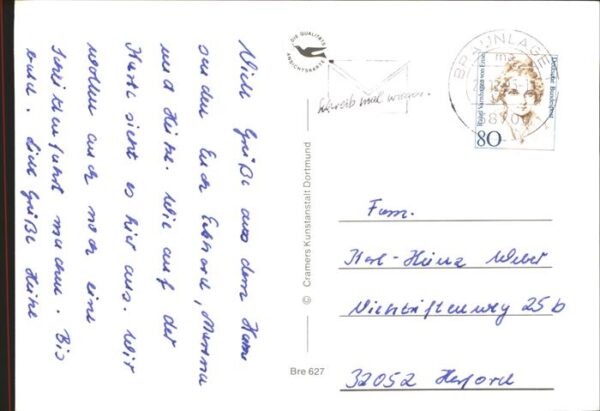 Viele Grüße aus dem Harz
senden Euch Eckhard,
und Heike. Wie auf der
Karte sieht es hier aus. Wir
wollen auch noch eine
Schlittenfahrt machen. Bis
bald. Liebe Grüße Heike
DIE QUALITÄTS
ANSICHTSKARTE
Schreib mal wieder.
BRAUNLAGE
ma
Rahel Varnhagen von Ense
Deutsche Bundespost
80
© Cramers Kunstanstalt Dortmund
Bre 627
Fam.
Karl-Heinz Weber
25b
32052 Herford